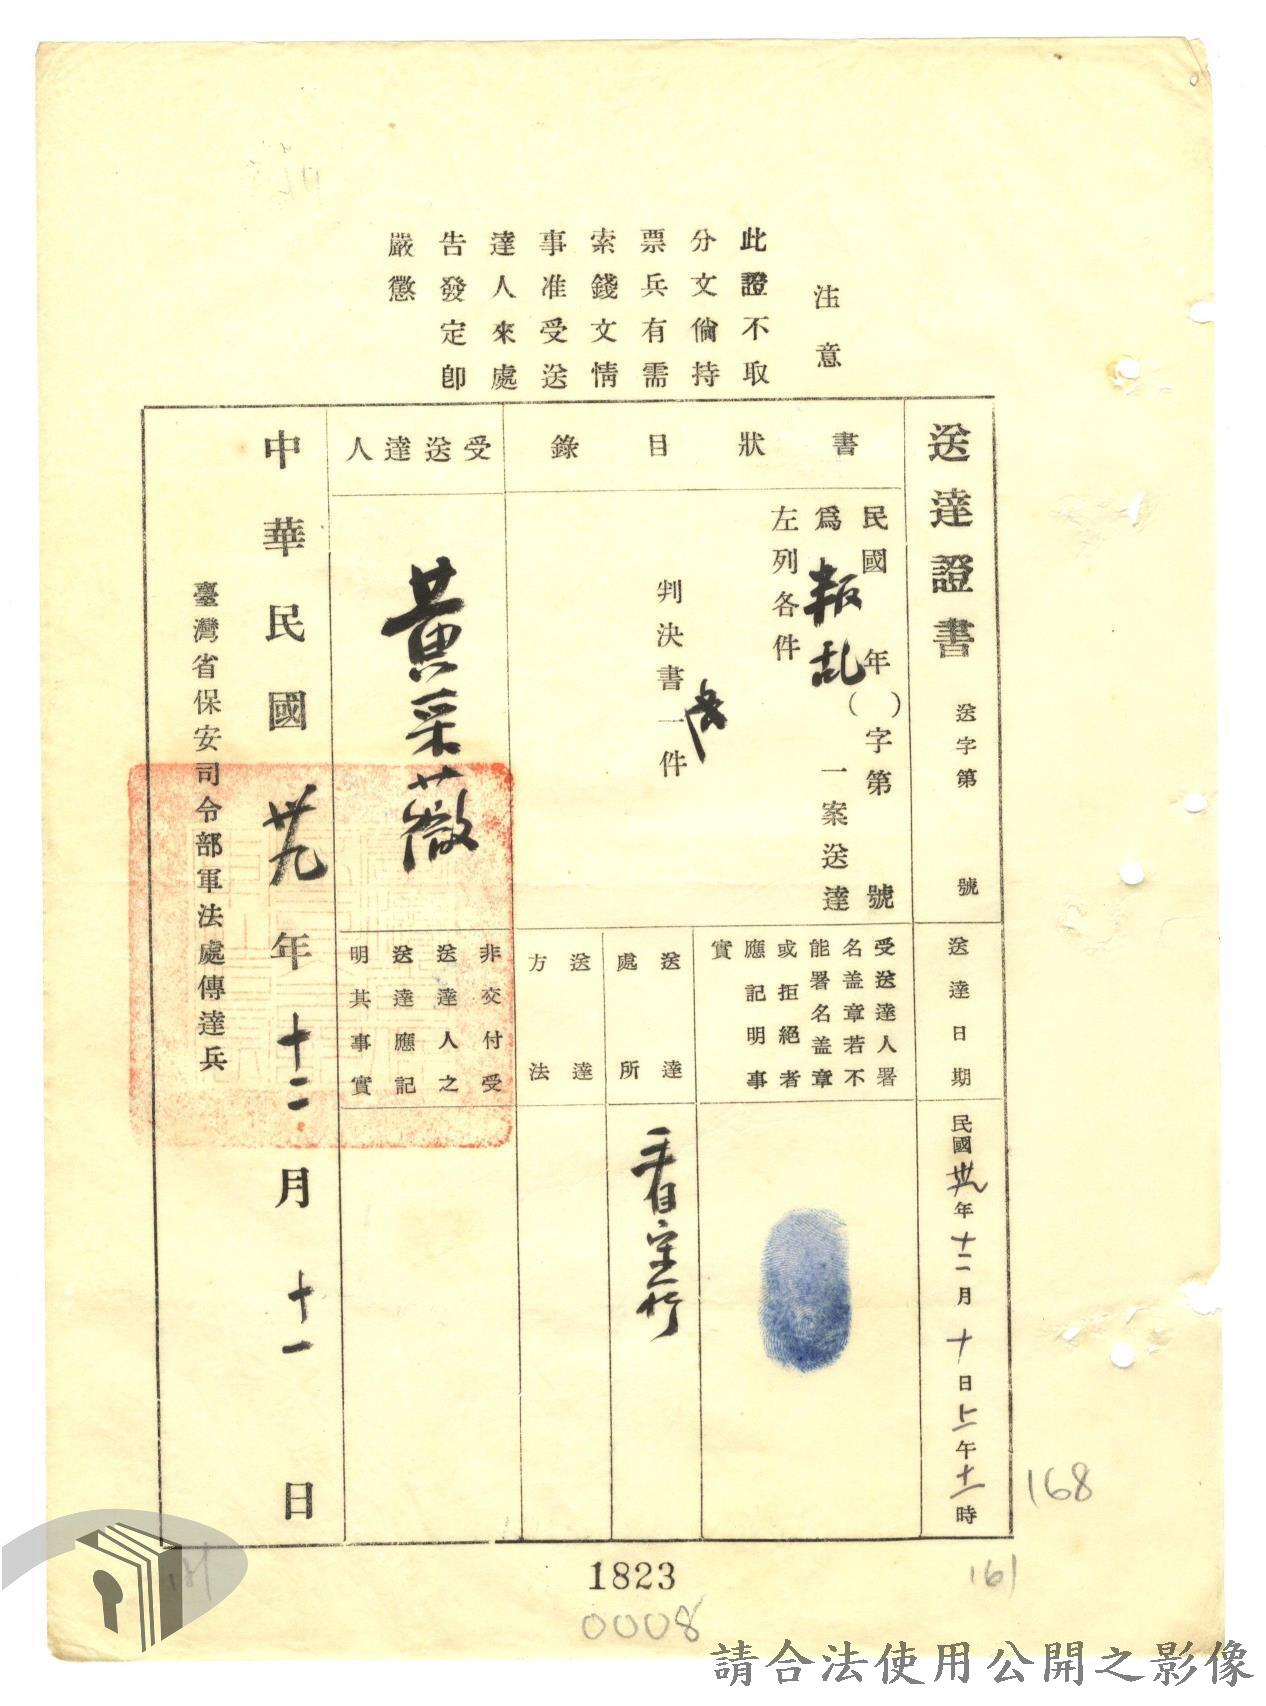 注意
此證不取
分文倘持
票兵有需
索錢文情
事准受送
達人來處
告發定卽
嚴懲
送達證書
送字第 號
書狀目錄
民國 年( )字第 號
爲叛乱一案送達
左列各件
判決書一件
受送達人
黃采薇
送達日期
民國卅九年十二月十日上午十一時
受送達人署
名盖章若不
能署名盖章
或拒絕者
應記明事
實
送達處所
看守所
送達方法
非交付受
送達人之
送達應記
明其事實
中華民國卅九年十二月十一日
臺灣省保安司令部軍法處傳達兵
168
161
1823
0008
請合法使用公開之影像